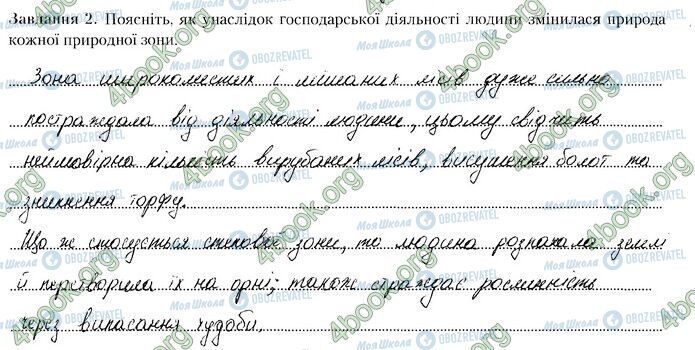 Завдання 2. Поясніть, як унаслідок господарської діяльності людини змінилася природа
кожної природної зони.
Зона широколистих і мішаних лісів дуже сильно
постраждала від діяльності людини, цьому свідчить
неймовірна кількість вирубаних лісів, висушення болот та
зникнення торфу.
Що ж стосується степової зони, то людина розпахала землі
й перетворила їх на орні; також страждає рослинність
через випасання худоби.